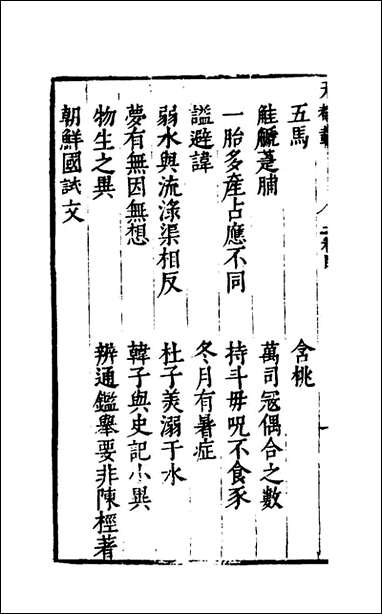 五馬　含桃
觟𧣾萐脯　萬司冦偶合之數
一胎多產占應不同　持斗毋呪不食豕
諡避諱　冬月有暑症
弱水與流涤渠相反　杜子美溺于水
夢有無因無想　韓子與史記小異
物生之異　辨通鑑舉要非陳桱著
朝鮮國試文